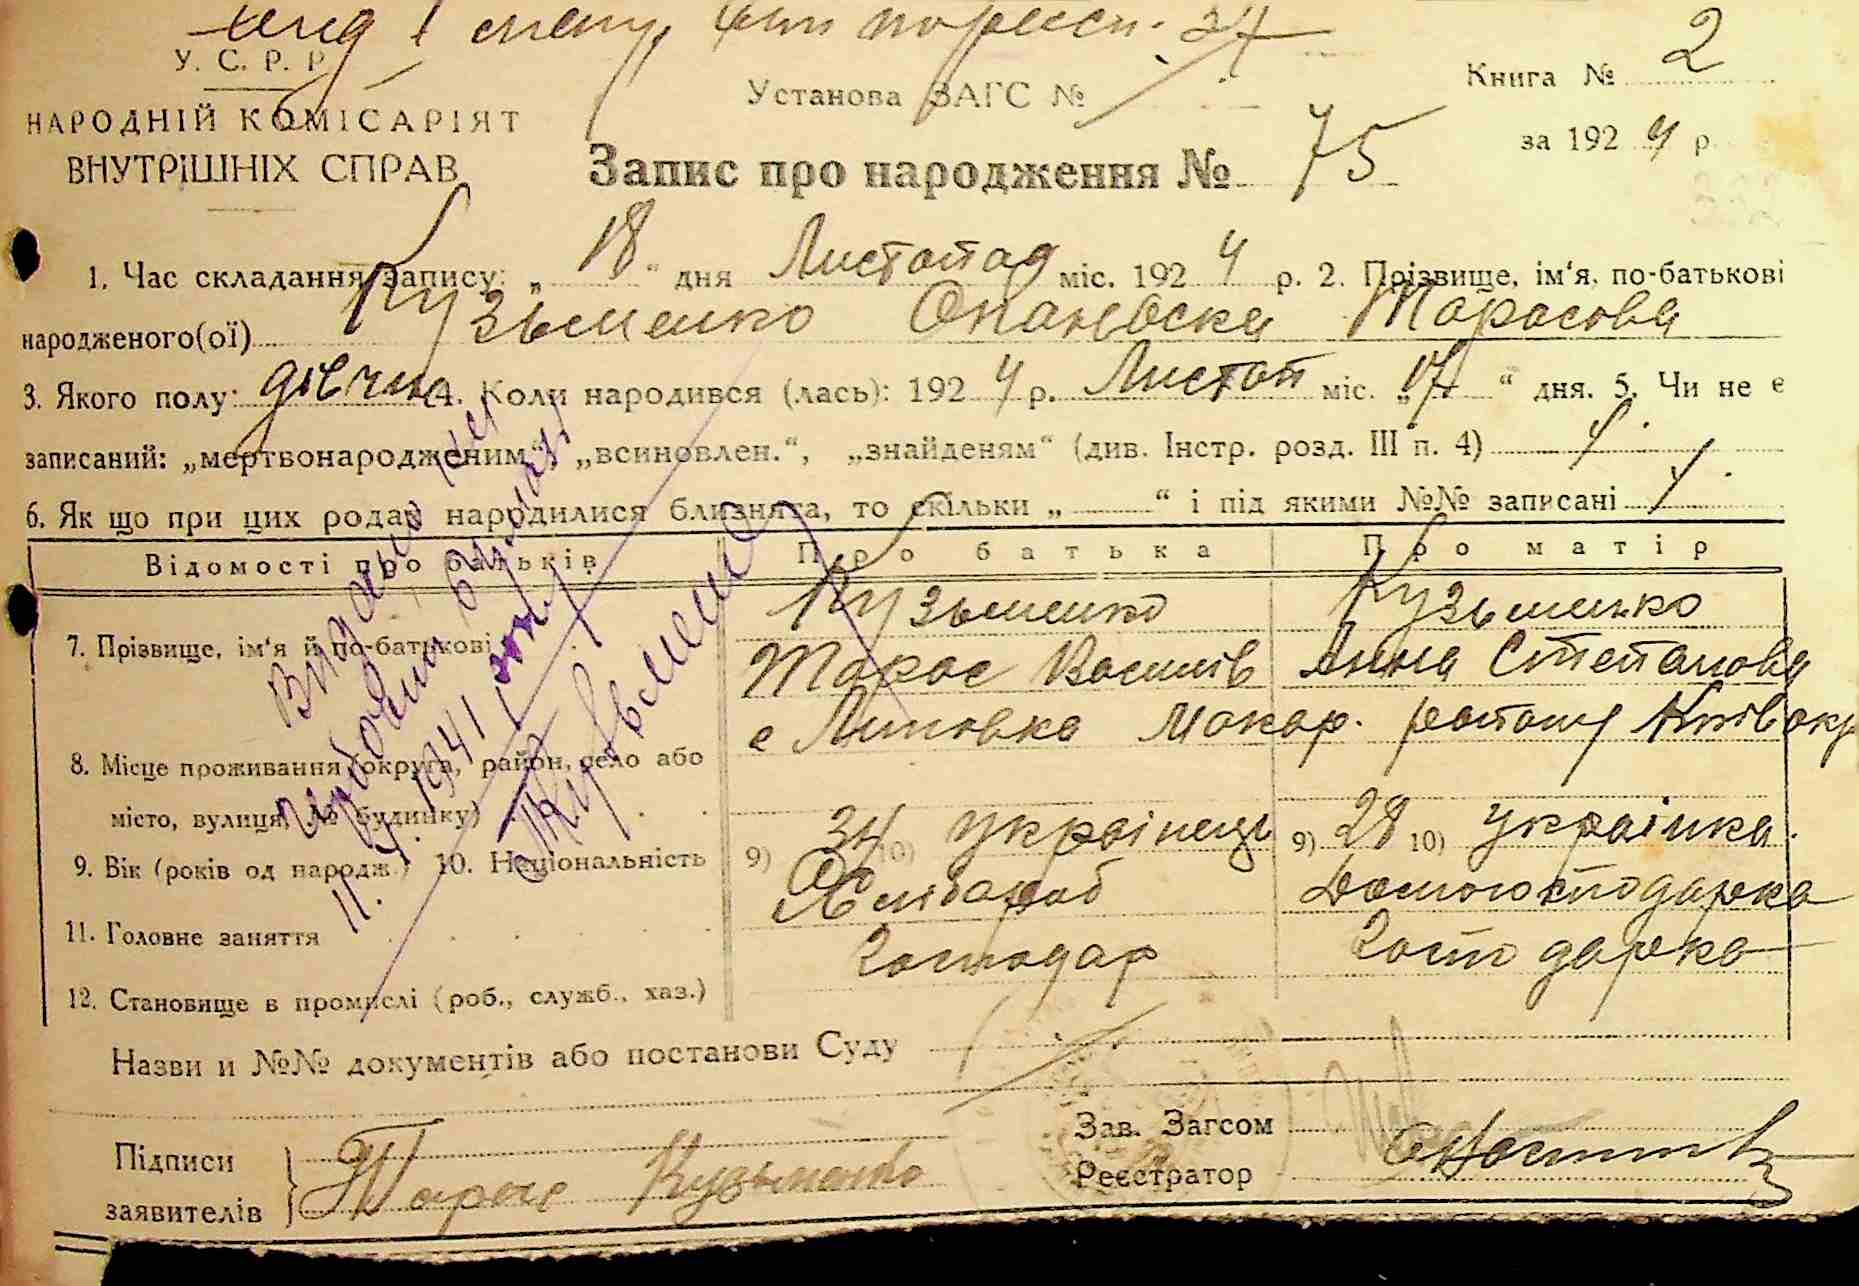 У. С. Р. Р.
НАРОДНІЙ КОМІСАРІЯТ
ВНУТРІШНІХ СПРАВ
Установа ЗАГС №
Книга № 2
за 1924 р.
Запис про народження № 75
1. Час складання запису: „18“ дня Листопад міс. 1924 р. 2. Прізвище, ім'я, по-батькові
народженого(ої) Кузьменко Опанаска Тарасова
3. Якого полу: дівчина 4. Коли народився (лась): 1924 р. Листоп міс. „17“ дня. 5. Чи не є
записаний: „мертвонародженим“, „всиновлен.“, „знайденям“ (див. Інстр. розд. III п. 4)
6. Як що при цих родах народилися близнята, то скільки „ “ і під якими №№ записані
Відомості про батьків Про батька Про матір
7. Прізвище, ім'я й по-батькові
Кузьменко Тарас Василів
Кузьменко Анна Степанова
8. Місце проживання (округа, район, село або
місто, вулиця, № будинку)
с Липовка Макар. району Київ окр
9. Вік (років од народж.) 10. Національність
9) 34 10) Українець 9) 28 10) Українка.
11. Головне заняття
Хлібороб Домогосподарка
12. Становище в промислі (роб., служб., хаз.)
Господар Господарка
Назви и №№ документів або постанови Суду
Підписи
заявителів
Тарас Кузьменко
Зав. Загсом
Реєстратор
11. 4. 1941